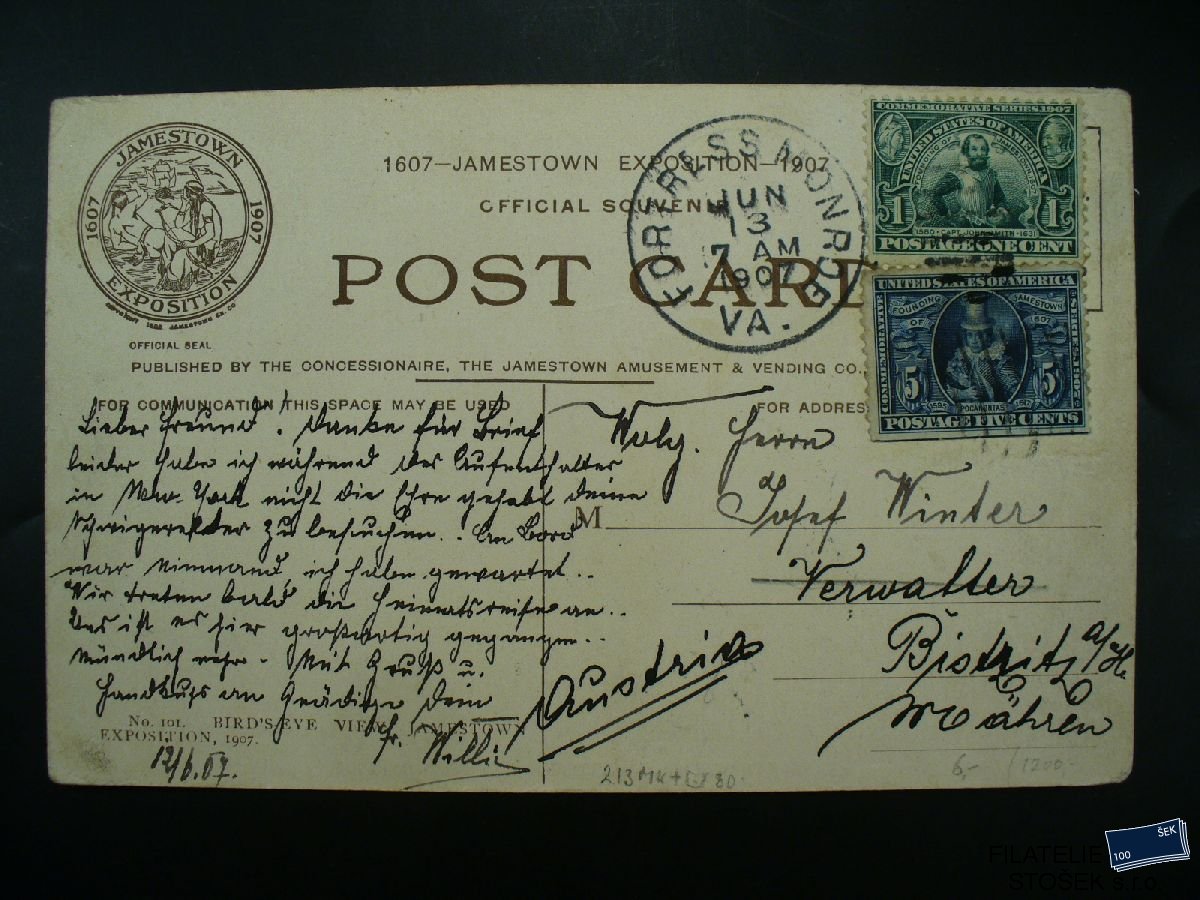 JAMESTOWN
1607 1907
EXPOSITION
OFFICIAL SEAL
1607—JAMESTOWN EXPOSITION—1907
OFFICIAL SOUVENIR
POST CARD
PUBLISHED BY THE CONCESSIONAIRE, THE JAMESTOWN AMUSEMENT & VENDING CO.,
FORTRESS MONROE
JUN
13
7 AM
1907
VA.
COMMEMORATIVE SERIES 1907
UNITED STATES OF AMERICA
1 1
1580 · CAPT. JOHN SMITH · 1631
POSTAGE ONE CENT
UNITED STATES OF AMERICA
FOUNDING OF JAMESTOWN 1607
COMMEMORATIVE SERIES 1907
5 5
1595 POCAHONTAS 1617
POSTAGE FIVE CENTS
FOR COMMUNICATION THIS SPACE MAY BE USED
FOR ADDRESS
Lieber Freund! Danke für Brief
leider habe ich während des Aufenthaltes
in New-York nicht die Ehre gehabt deine
zu besuchen. An Bord
war niemand, ich habe gewartet..
Wir treten bald die Heimatsreise an..
Uns ist es hier großartig gegangen..
Mündlich mehr. Mit Gruß u.
Handkuss an Gnädige Dein
Willi
12/6.07.
No. 101. BIRD'S-EYE VIEW, JAMESTOWN
EXPOSITION, 1907.
M
Wolg. Herrn
Josef Winter
Verwalter
Bistritz a/H.
Mähren
Austria
6,- /1200.-
100 ŠEK
FILATELIE
STOŠEK s.r.o.